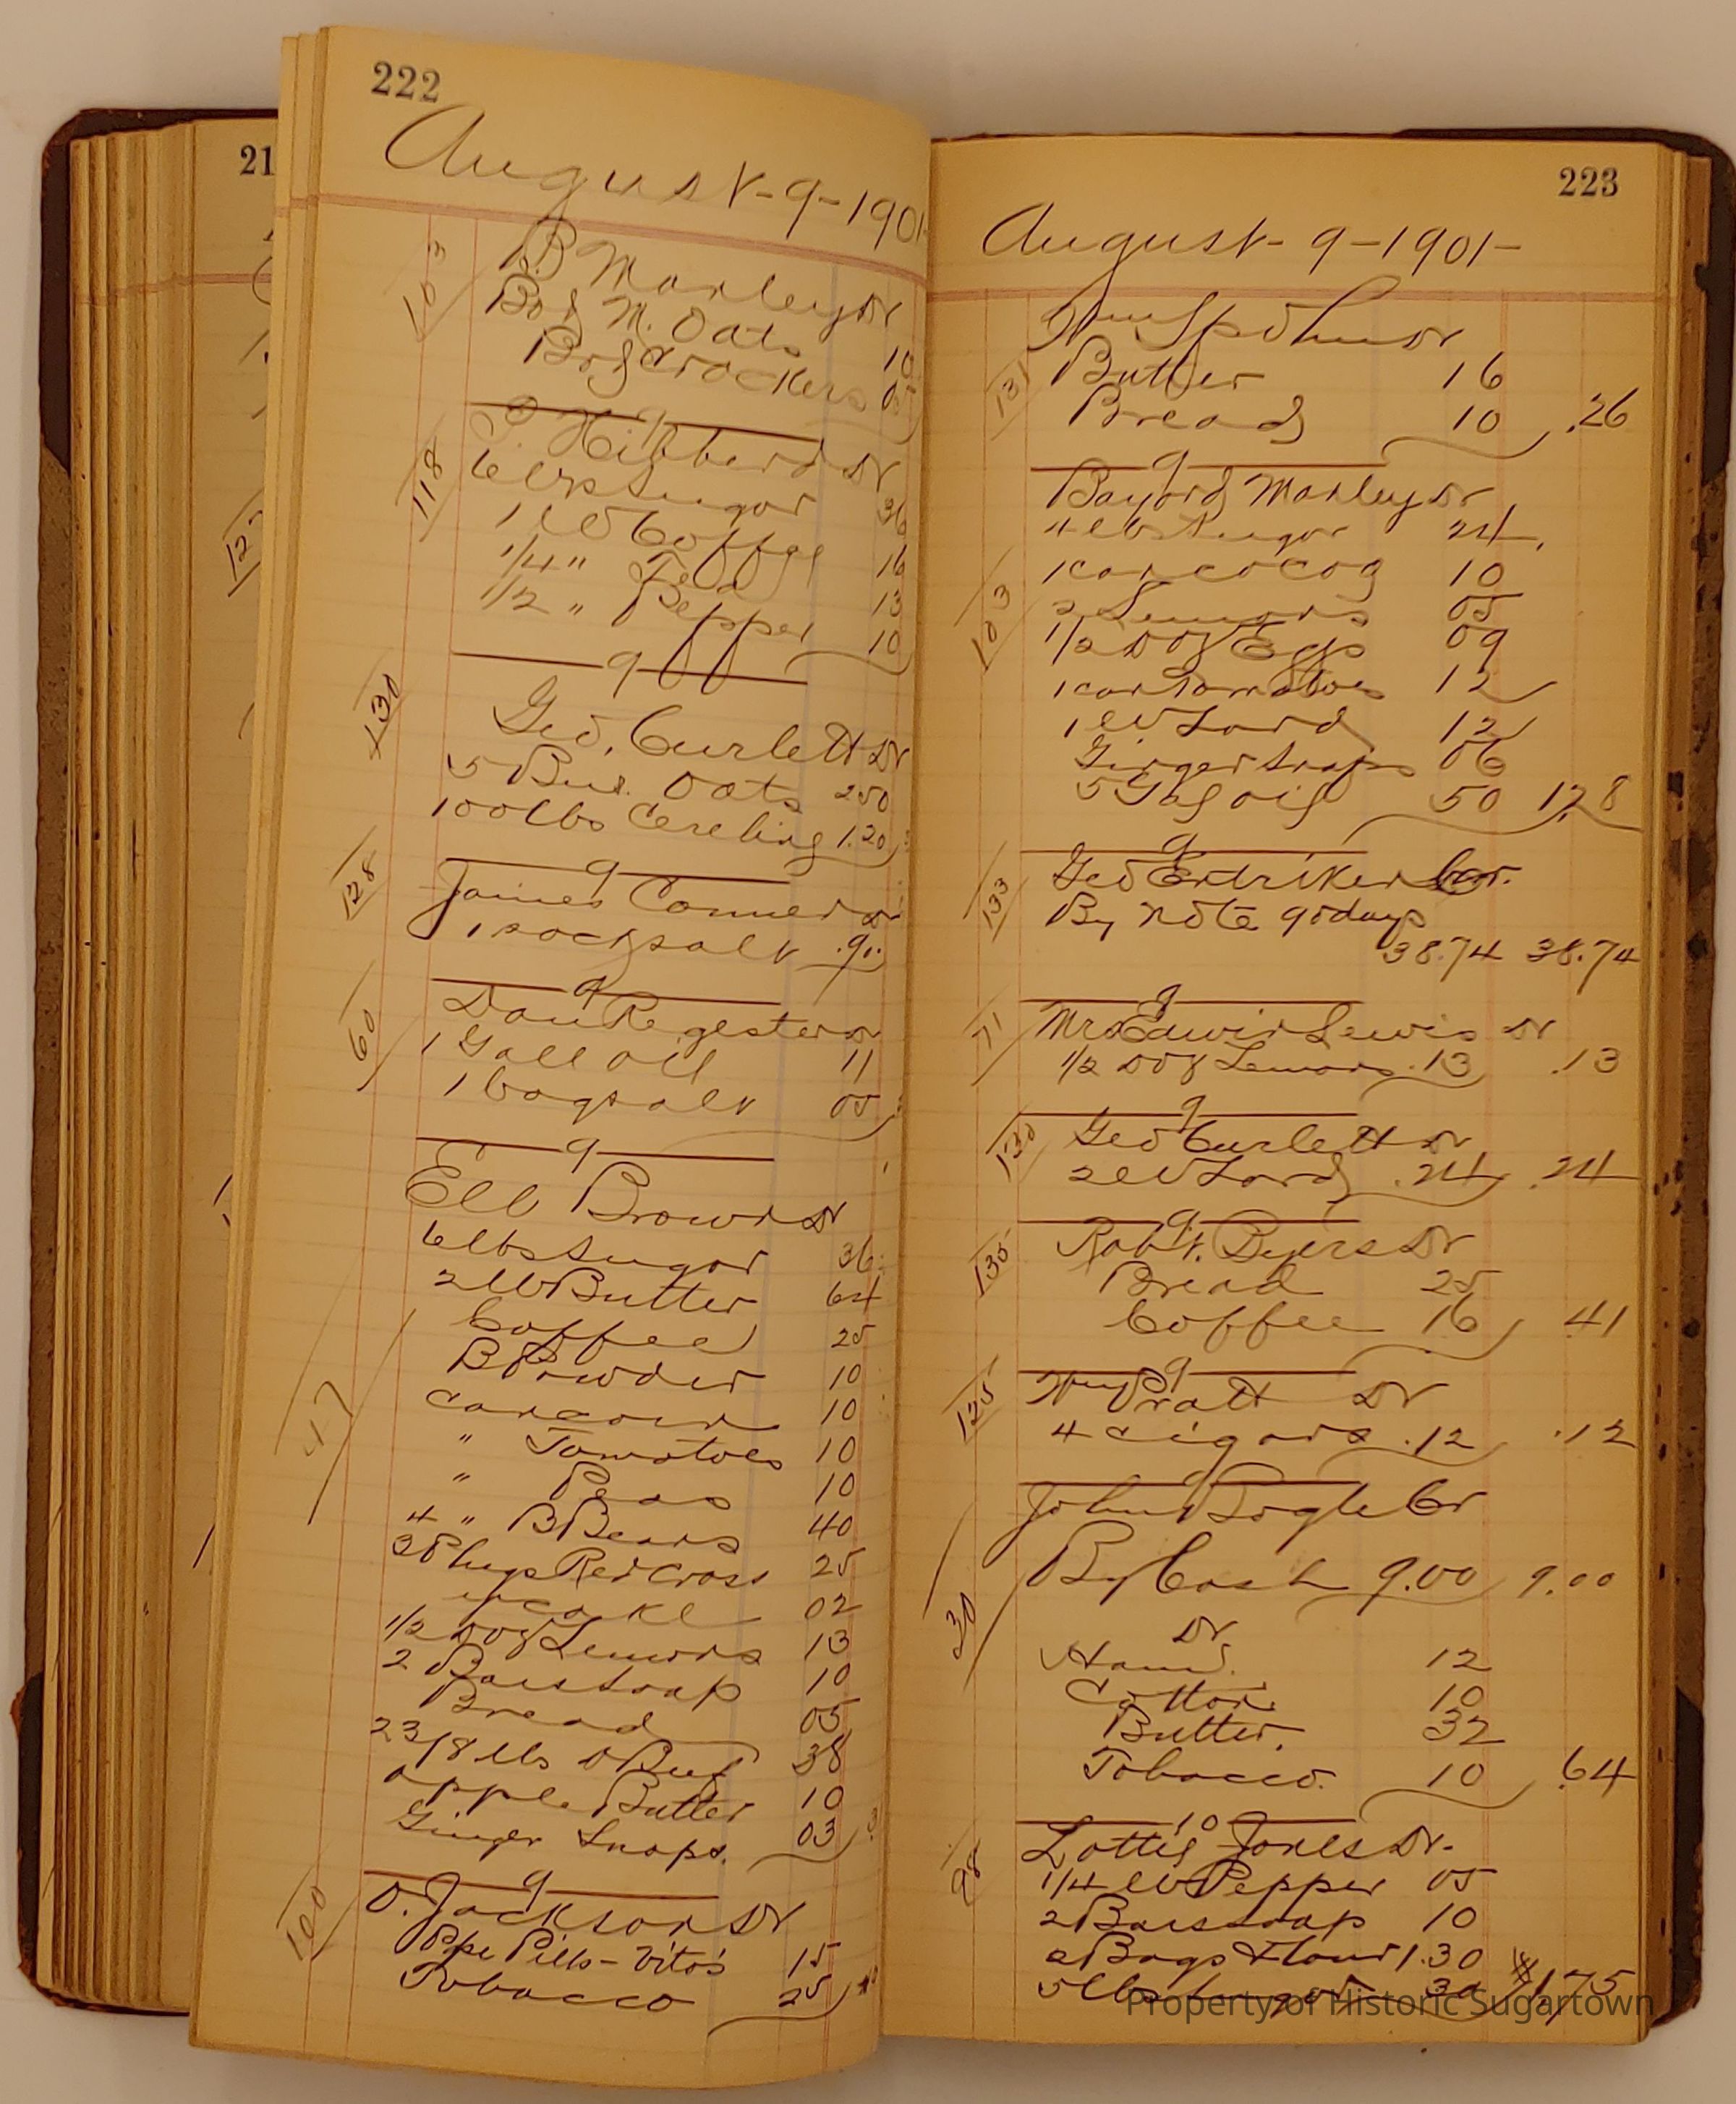 21
222
August-9-1901
103
B Marley Dr
Box M. Oats 10
Box Crackers 05
9
118
Hibberd Dr
6 lbs Sugar 36
1 lb Coffee 16
1/4 " Tea 13
1/2 " Pepper 10
9
130
Geo. Curlett Dr
5 Bus. Oats 250
100 lbs 1.20
9
128
James Conner Dr
1 sack salt .90
9
60
Dan Regester Dr
1 Gall oil 11
1 bag salt 05
9
47
Ell Brown Dr
6 lbs Sugar 36
2 lb Butter 64
Coffee 25
B Powder 10
can corn 10
" Tomatoes 10
" Peas 10
4 " B Beans 40
3 Phgs Red Cross 25
02
1/2 Doz Lemons 13
2 Bars Soap 10
Bread 05
2 3/8 lbs D Beef 38
apple Butter 10
Ginger Snaps. 03
9
100
O. Jackson Dr
Pills - Vito's 15
Tobacco 25
12
223
August- 9-1901-
131
Dr
Butter 16
Bread 10 .26
9
103
Bayard Marley Dr
4 lbs Sugar 24
1 can cocoa 10
2 Lemons 05
1/2 Doz Eggs 09
1 can Tomatoes 12
1 lb Lard 12
Ginger Snaps 06
5 Gal oil 50 1.28
9
133
Geo Entriken Cr.
By Note 90 days
38.74 38.74
9
71
Mrs Edwin Lewis Dr
1/2 Doz Lemons .13 .13
9
130
Geo Curlett Dr
2 lb Lard .24 .24
9
135
Robt. Byers Dr
Bread 25
Coffee 16 41
9
125
Wm Pratt Dr
4 cigars .12 .12
9
30
John Vogle Cr
By Cash 9.00 9.00
Dr
Ham. 12
Cotton 10
Butter. 32
Tobacco. 10 .64
10
98
Lottie Jones Dr.
1/4 lb Pepper 05
2 Bars soap 10
2 Bags Flour 1.30
5 lbs Sugar 30 1.75
Property of Historic Sugartown